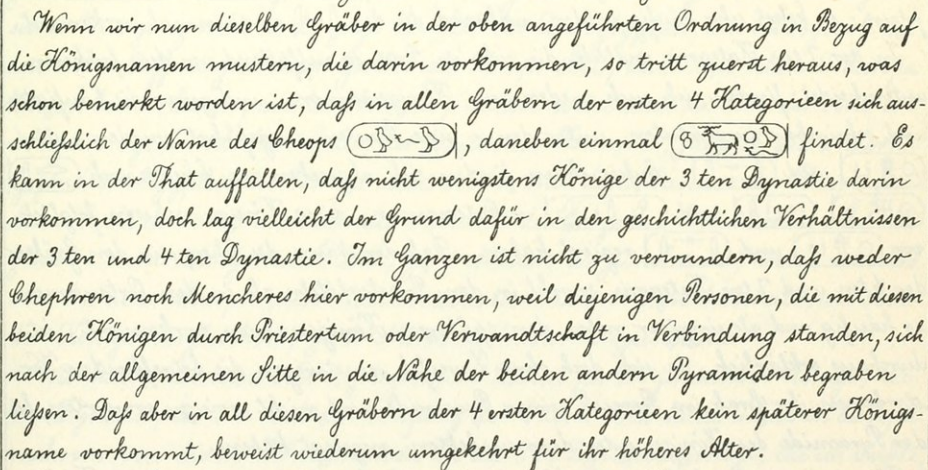 Wenn wir nun dieselben Gräber in der oben angeführten Ordnung in Bezug auf
die Königsnamen mustern, die darin vorkommen, so tritt zuerst heraus, was
schon bemerkt worden ist, daſs in allen Gräbern der ersten 4 Kategorieen sich aus-
schlieſslich der Name des Cheops , daneben einmal findet. Es
kann in der That auffallen, daſs nicht wenigstens Könige der 3 ten Dynastie darin
vorkommen, doch lag vielleicht der Grund dafür in den geschichtlichen Verhältnissen
der 3 ten und 4 ten Dynastie. Im Ganzen ist nicht zu verwundern, daſs weder
Chephren noch Mencheres hier vorkommen, weil diejenigen Personen, die mit diesen
beiden Königen durch Priestertum oder Verwandtschaft in Verbindung standen, sich
nach der allgemeinen Sitte in die Nähe der beiden andern Pyramiden begraben
lieſsen. Daſs aber in all diesen Gräbern der 4 ersten Kategorieen kein späterer Königs-
name vorkommt, beweist wiederum umgekehrt für ihr höheres Alter.